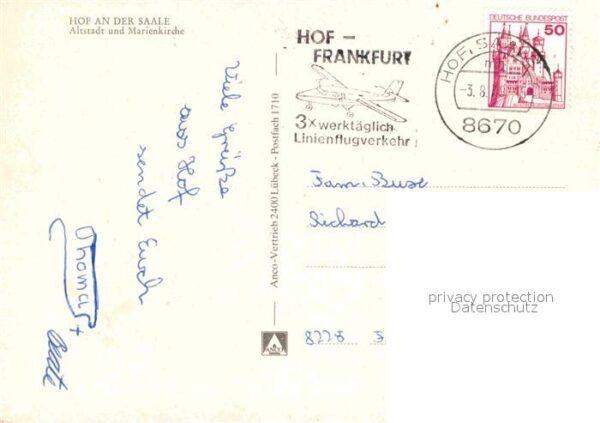 HOF AN DER SAALE
Altstadt und Marienkirche
Viele Grüße
aus Hof
sendet Euch
Thomas
+
Beate
Anco-Vertrieb 2400 Lübeck - Postfach 1710
ANCO
HOF –
FRANKFURT
3× werktäglich
Linienflugverkehr
HOF, SAALE
-3.8.
8670
DEUTSCHE BUNDESPOST
50
Fam. Buse
Richard
8228
privacy protection
Datenschutz